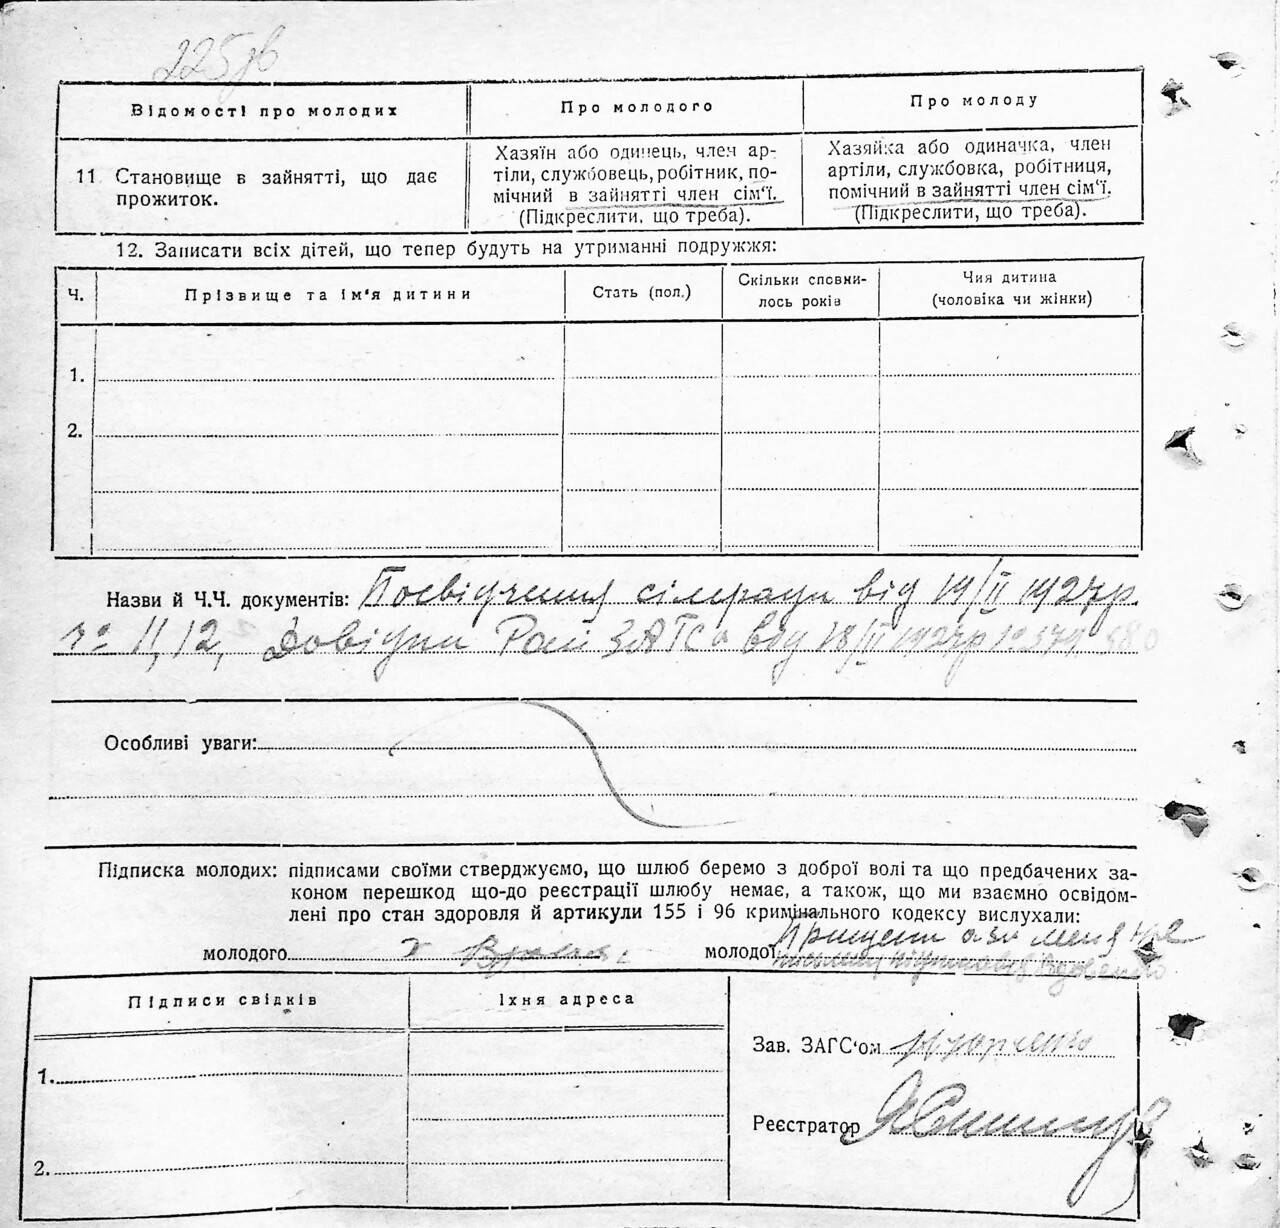 225зв
Відомості про молодих
Про молодого
Про молоду
11 Становище в зайнятті, що дає
прожиток.
Хазяїн або одинець, член ар-
тіли, службовець, робітник, по-
мічний в зайнятті член сім'ї.
(Підкреслити, що треба).
Хазяйка або одиначка, член
артіли, службовка, робітниця,
помічний в зайнятті член сім'ї.
(Підкреслити, що треба).
12. Записати всіх дітей, що тепер будуть на утриманні подружжя:
Ч.
Прізвище та ім'я дитини
Стать (пол.)
Скільки сповни-
лось років
Чия дитина
(чоловіка чи жінки)
1.
2.
Назви й Ч.Ч. документів: Посвідчення сілради від 19/II 1927р.
11, 12, Довідки ЗАГСа від 18/II 1927р 379, 380
Особливі уваги:
Підписка молодих: підписами своїми стверджуємо, що шлюб беремо з доброї волі та що предбачених за-
коном перешкод що-до реєстрації шлюбу немає, а також, що ми взаємно освідом-
лені про стан здоровля й артикули 155 і 96 кримінального кодексу вислухали:
молодого
молодої
Підписи свідків
Їхня адреса
1.
2.
Зав. ЗАГС'ом
Реєстратор